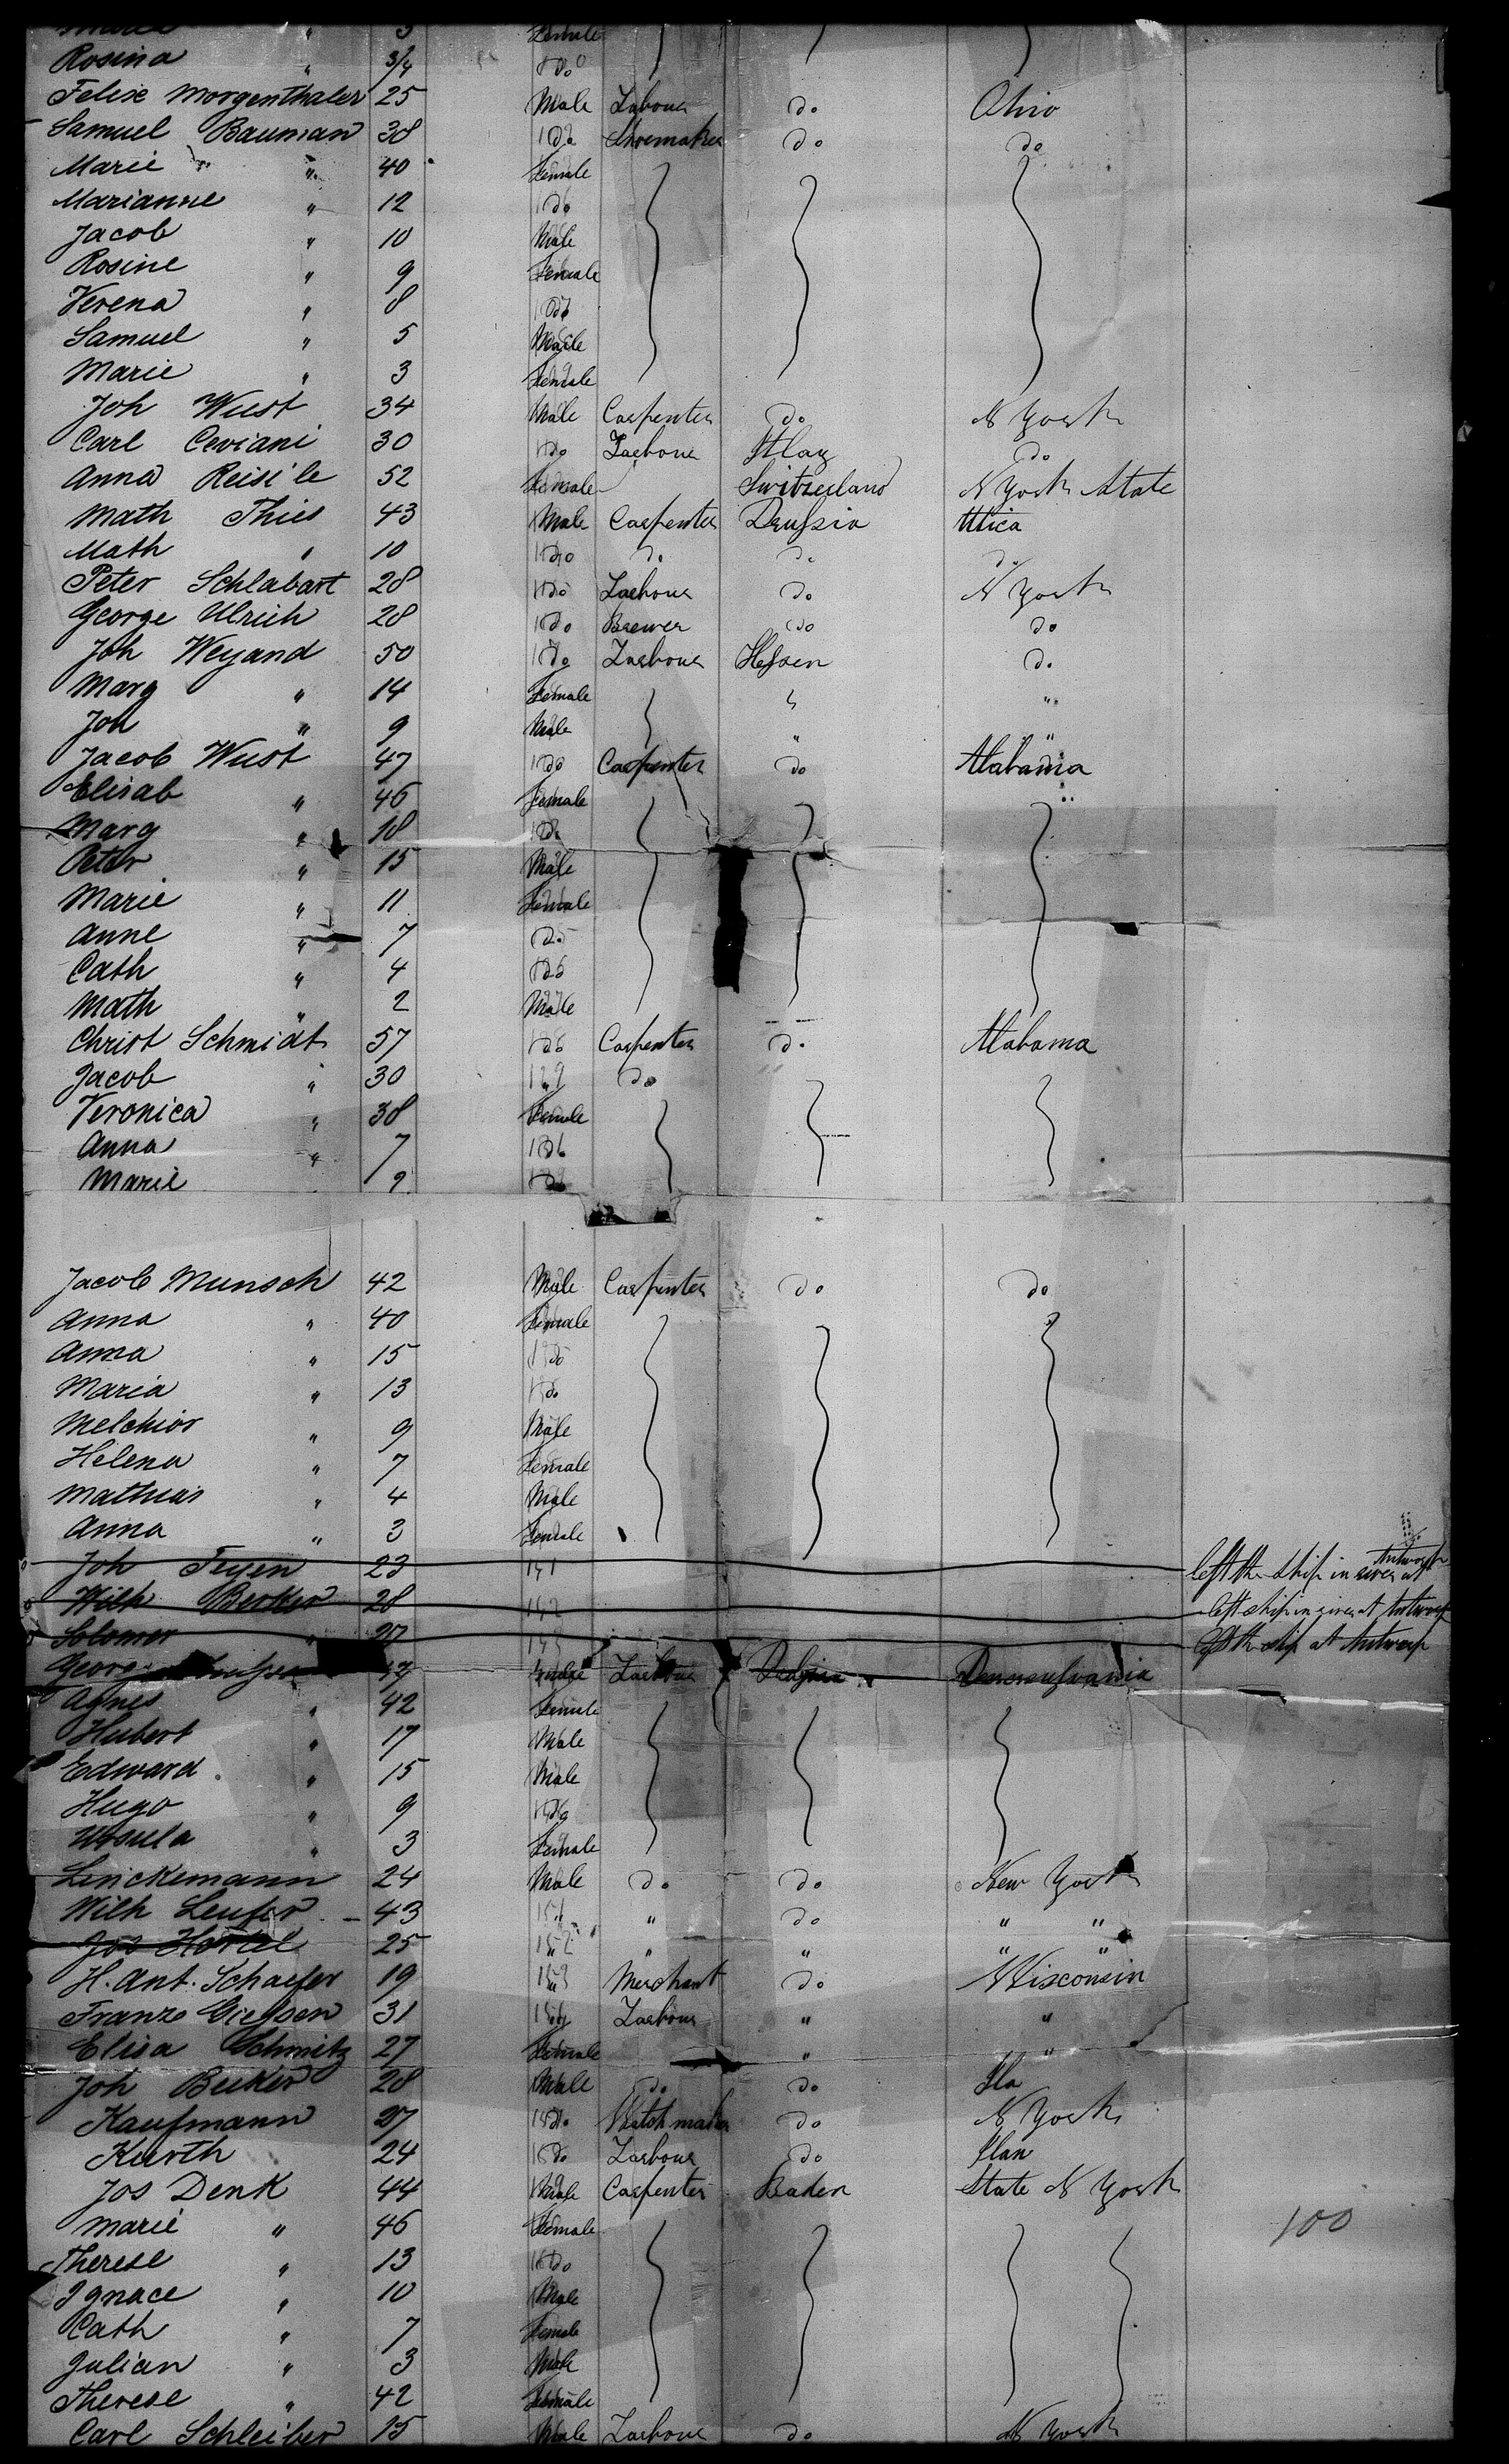 Marie " 3 Female
Rosina " 3/4 do
Felix Morgenthaler 25 Male Labour do Ohio
Samuel Bauman 38 do Shoemaker do do
Marie " 40 Female
Marianne " 12 do
Jacob " 10 Male
Rosine " 9 Female
Verena " 8 do
Samuel " 5 Male
Marie " 3 Female
Joh Wust 34 Male Carpenter do N York
Carl Ceviani 30 do Labour Itlay do
Anna Reisile 52 Female Switzerland N York State
Math Thies 43 Male Carpenter Preussia Utica
Math " 10 do do do do
Peter Schlabart 28 do Labour do N York
George Ulrich 28 do Brewer do do
Joh Weyand 50 do Labour Hessen do
Marg " 14 Female "
Joh " 9 Male " " "
Jacob Wust 47 do Carpenter do Alabama
Elisab " 46 Female
Marg " 18 do
Peter " 15 Male
Marie " 11 Female
Anne " 7 do
Cath " 4 do
Math " 2 Male
Christ Schmidt 57 do Carpenter do Alabama
Jacob " 30 " do
Veronica " 38 Female
Anna " 7 do
Marie 2 do
Jacob Munsch 42 Male Carpenter do do
Anna " 40 Female
Anna " 15 do
Maria " 13 do
Melchior " 9 Male
Helena " 7 Female
Mathias " 4 Male
Anna " 3 Female
Joh Feyen 23 141 left the ship in river at Antwerp
Wilh Berker 28 142 left ship in river at Antwerp
Solomer " 27 left the ship at Antwerp
Georg Male Labour Pennsylvania
Agnes " 42 Female
Hubert " 17 Male
Edward " 15 Male
Hugo " 9 do
Ursula " 3 Female
Linckemann 24 Male do do New York
Wilh Leufer 43 " " do " "
Jos Hortel 25 " " " " "
H. Ant. Schaefer 19 " Merchant do Wisconsin
Franz Giessen 31 do Labour " "
Elisa Schmitz 27 Female " "
Joh Becker 28 Male do do
Kaufmann 27 do Watchmaker do N York
Kurth 24 do Labour do
Jos Denk 44 Male Carpenter Baden State N York
Marie " 46 Female 100
Therese " 13 do
Ignace " 10 Male
Cath " 7 Female
Julian " 3 Male
Therese " 42 Female
Carl Schleiber 15 Male Labour do N York